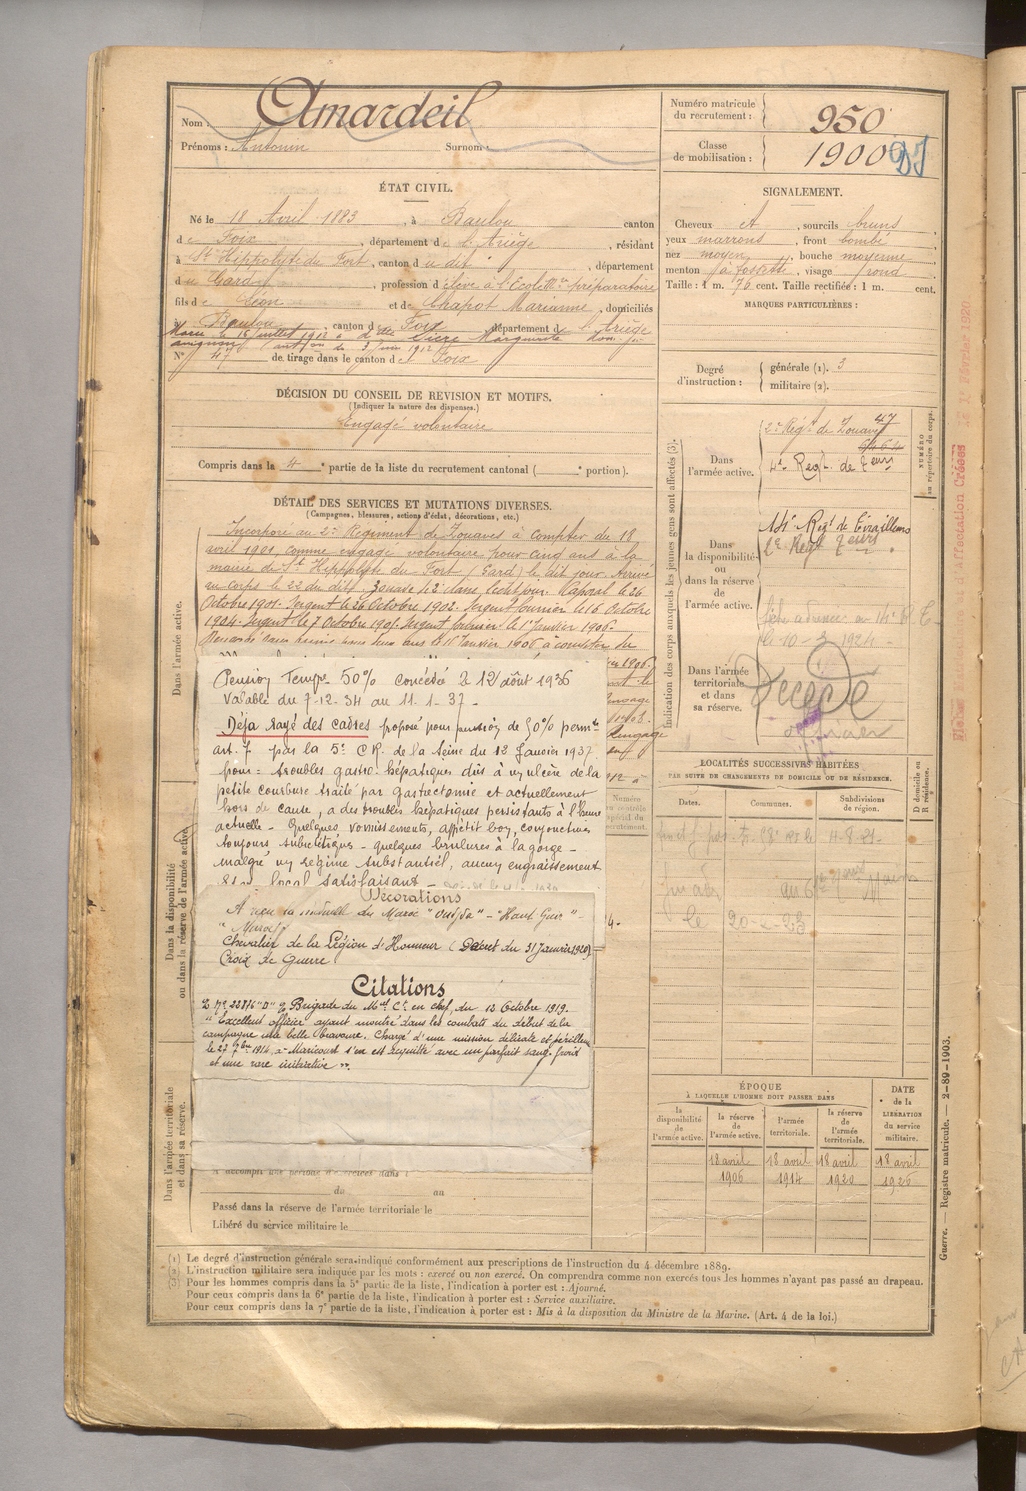 Nom : Amardeil
Prénoms : Antonin Surnom :
Numéro matricule du recrutement : 950
Classe de mobilisation : 1900
ÉTAT CIVIL.
Né le 18 Avril 1883, à Baulou canton
de Foix, département de l'Ariège, résidant
à St Hippolyte du Fort, canton du dit, département
du Gard, profession d'élève à l'Ecole préparatoire
fils de Léon et de Chapot Marianne, domiciliés
à Baulou, canton de Foix, département de l'Ariège
Marié le 15 juillet 1912 à Marguerite
3 Juin 1912
N° 47 de tirage dans le canton de Foix
SIGNALEMENT.
Cheveux et, sourcils bruns,
yeux marrons, front bombé,
nez moyen, bouche moyenne,
menton à fossette, visage rond,
Taille : 1 m. 76 cent. Taille rectifiée : 1 m. cent.
MARQUES PARTICULIÈRES :
DÉCISION DU CONSEIL DE REVISION ET MOTIFS.
(Indiquer la nature des dispenses.)
Engagé volontaire
Compris dans la 4e partie de la liste du recrutement cantonal ( e portion).
Degré d'instruction : générale (1). 3
militaire (2).
DÉTAIL DES SERVICES ET MUTATIONS DIVERSES.
(Campagnes, blessures, actions d'éclat, décorations, etc.)
Incorporé au 2e Régiment de Zouaves à compter du 18
avril 1901, comme engagé volontaire pour cinq ans à la
mairie de St Hippolyte du Fort (Gard) le dit jour. Arrivé
au corps le 22 du dit. Zouave de 2e classe le dit jour. Caporal le 26
Octobre 1901. Sergent le 26 Octobre 1902. Sergent fourrier le 16 Octobre
1904. Sergent le 7 Octobre 1905. Sergent fourrier le 1er Janvier 1906.
deux ans le 11 Janvier 1906 à compter du
Dans l'armée active.
Dans la disponibilité ou dans la réserve de l'armée active.
Dans l'armée territoriale et dans sa réserve.
Pension Temp. 50% concédée le 12 août 1936
Valable du 7-12-34 au 11-1-37 -
Déjà rayé des cadres proposé pour pension de 50% permte
art. 7 par la 5e CR. de la Seine du 12 Janvier 1937
pour : troubles gastro-hépatiques dûs à un ulcère de la
petite courbure traité par gastrectomie et actuellement
hors de cause, a des troubles hépatiques persistants à l'heure
actuelle - Quelques vomissements, appétit bon, conjonctives
toujours subictériques - quelques brûlures à la gorge -
malgré un régime substantiel, aucun engraissement
Etat local satisfaisant -
Décorations
A reçu la médaille du Maroc "Oudjda" - "Haut Guir" -
"Maroc"
Chevalier de la Légion d'Honneur (Décret du 31 Janvier 1920)
Croix de Guerre
Citations
O. N° 22776 "D" Q. Brigade du Mal Ct en chef, du 13 Octobre 1919.
"Excellent officier ayant montré dans les combats du début de la
campagne une belle bravoure. Chargé d'une mission délicate et périlleuse
le 27 7bre 1914, à Maricourt s'en est acquitté avec un parfait sang-froid
et une rare initiative".
A accompli une période d'exercices dans l
du au
Passé dans la réserve de l'armée territoriale le
Libéré du service militaire le
Indication des corps auxquels les jeunes gens sont affectés (3).
NUMÉRO au répertoire du corps.
Dans l'armée active. 2e Régt de Zouaves 47
4e Regt de Teurs
Dans la disponibilité ou dans la réserve de l'armée active.
14e Regt de Tirailleurs
2e Regt Teurs
fiche adressée au 14e R T
le 10-3-1924 -
Dans l'armée territoriale et dans sa réserve.
Décédé
officier
LOCALITÉS SUCCESSIVES HABITÉES
PAR SUITE DE CHANGEMENTS DE DOMICILE OU DE RÉSIDENCE.
Dates. Communes. Subdivisions de région. D domicile ou R résidence.
4-8-21-
le 20-2-23
ÉPOQUE
À LAQUELLE L'HOMME DOIT PASSER DANS
la disponibilité de l'armée active. la réserve de l'armée active. l'armée territoriale. la réserve de l'armée territoriale.
DATE de la LIBÉRATION du service militaire.
18 avril 1906 18 avril 1914 18 avril 1920 18 avril 1926
(1) Le degré d'instruction générale sera indiqué conformément aux prescriptions de l'instruction du 4 décembre 1889.
(2) L'instruction militaire sera indiquée par les mots : exercé ou non exercé. On comprendra comme non exercés tous les hommes n'ayant pas passé au drapeau.
(3) Pour les hommes compris dans la 5e partie de la liste, l'indication à porter est : Ajourné.
Pour ceux compris dans la 6e partie de la liste, l'indication à porter est : Service auxiliaire.
Pour ceux compris dans la 7e partie de la liste, l'indication à porter est : Mis à la disposition du Ministre de la Marine. (Art. 4 de la loi.)
Guerre. — Registre matricule. — 2-89-1903.